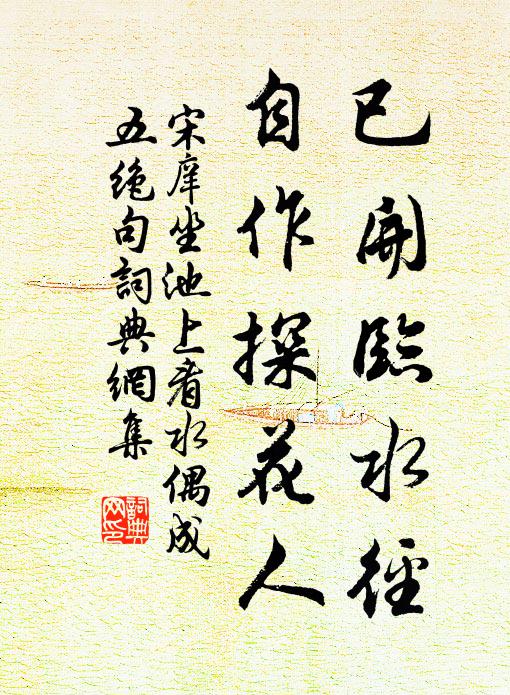 已開臨水徑
自作探花人
宋庠坐池上看水偶成
五絕句詞典網集
詞典
网印